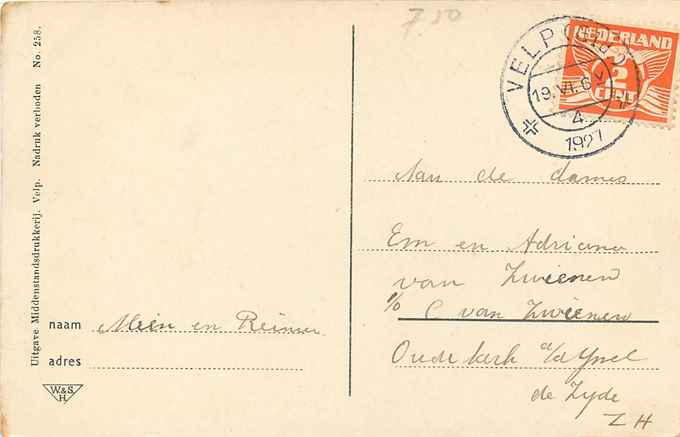 7.50
NEDERLAND
2
CENT
VELP (GLD)
19.VI.6 V
4
1927
Aan de dames
Em en Adriana
van Zwienen
c/o C van Zwienen
Ouderkerk a/d Yssel
de Zyde
ZH
naam Mien en Reinier
adres
W&S.
H.
Uitgave Middenstandsdrukkerij. Velp. Nadruk verboden No. 258.